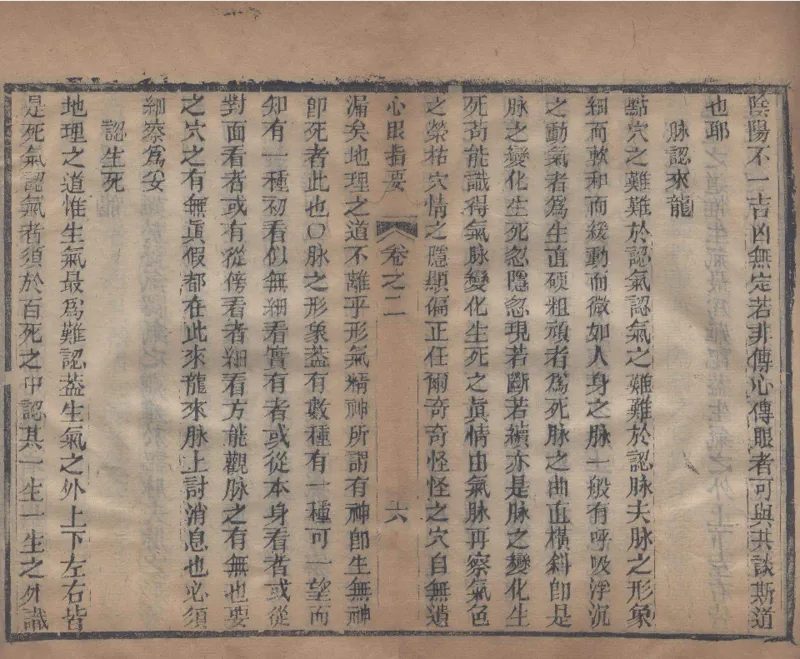 陰陽不一吉凶無定若非傳心傳眼者可與共談斯道
也耶
脉認來龍
點穴之難難於認氣認氣之難難於認脉夫脉之形象
細而軟和而緩動而微如人身之脉一般有呼吸浮沉
之動氣者爲生直硬粗頑者爲死脉之曲直橫斜卽是
脉之變化生死忽隱忽現若斷若續亦是脉之變化生
死苟能識得氣脉變化生死之眞情由氣脉再察氣色
之榮枯穴情之隱顯偏正任爾奇奇怪怪之穴自無遺
心眼指要 卷之二 六
漏矣地理之道不離乎形氣精神所謂有神卽生無神
卽死者此也〇脉之形象葢有數種有一種可一望而
知有一種初看似無細看實有者或從本身看者或從
對面看者或有從傍看者細看方能觀脉之有無也要
之穴之有無眞假都在此來龍來脉上討消息也必須
細察爲妥
認生死
地理之道惟生氣最爲難認葢生氣之外上下左右皆
是死氣認氣者須於百死之中認其一生一生之外識